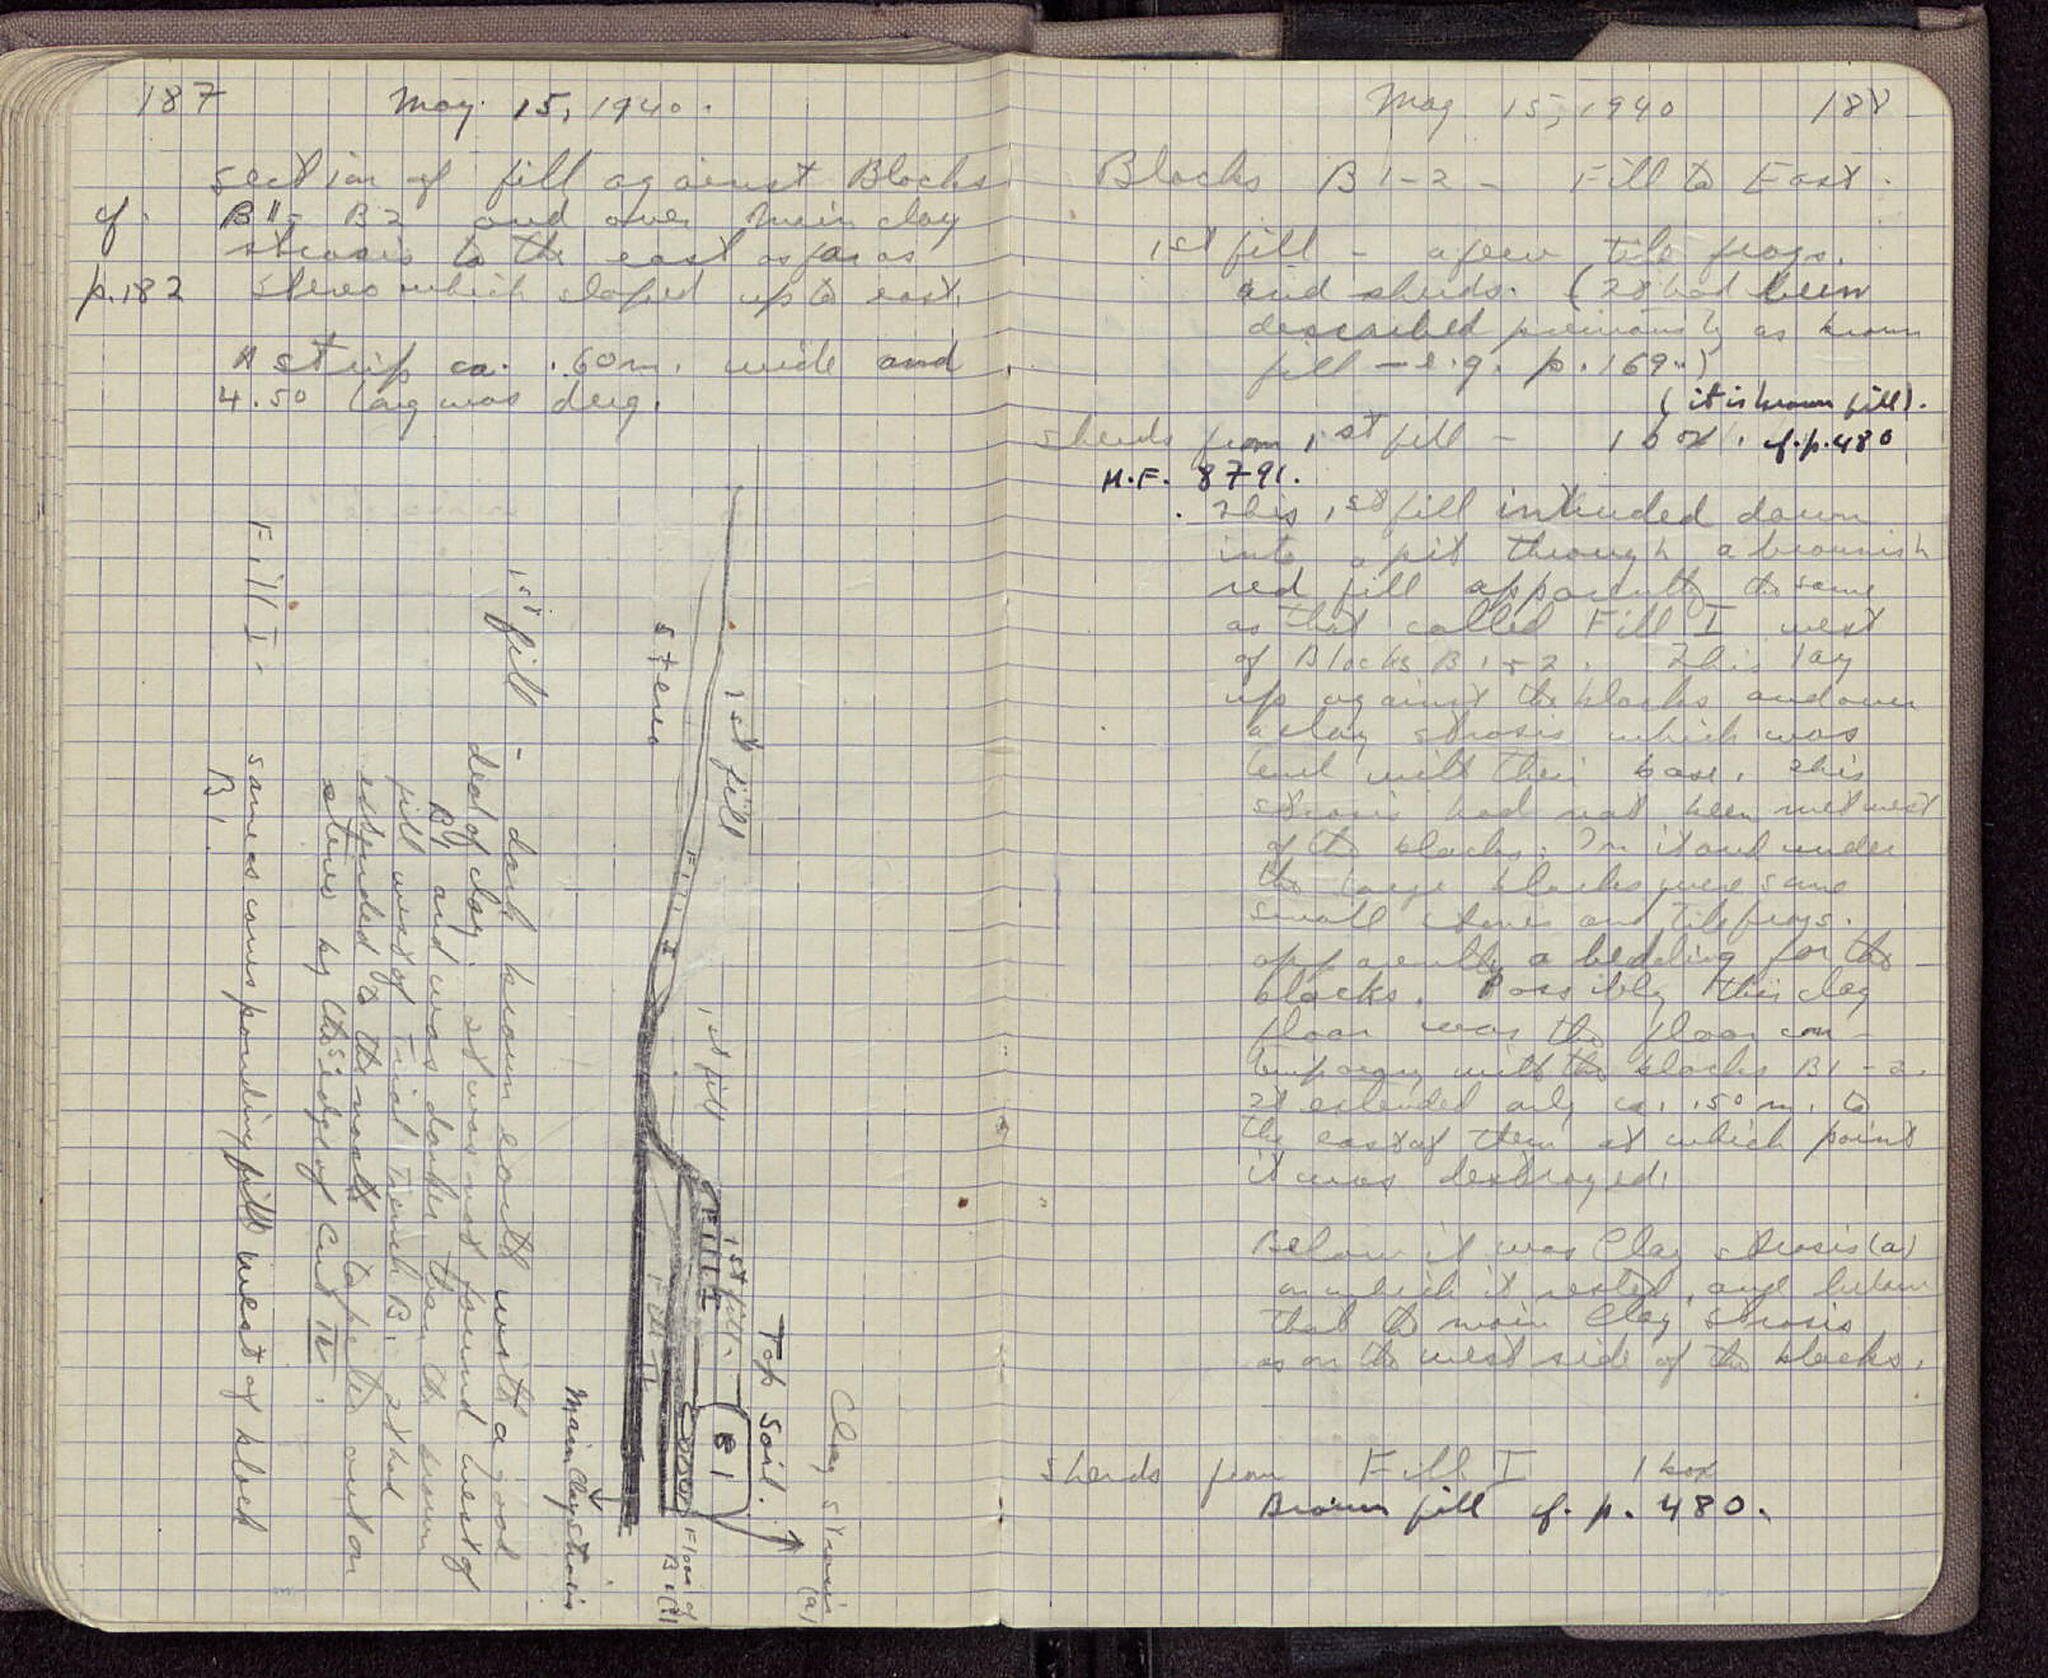 187 May 15, 1940.
section of fill against Blocks
cf. B 1 - B 2 and over main clay
strosis to the east as far as
p. 182 stereo which sloped up to east.
A strip ca. .60 m. wide and
4.50 long was dug.
1st fill - dark brown earth with a good
deal of clay. It was not found west of
B1, and was darker than the brown
fill west of Trial Trench B. It had
extended to the north tapered out on
stereo by the edge of Cut IV.
Fill I. same as corresponding fill west of block
B1.
Stereo
1st fill
Fill I
1st fill
Fill I
1st fill.
Fill II
B1
Top soil.
Clay strosis (a)
Floor of B1(?)
Main Clay strosis
May 15, 1940 188
Blocks B 1-2 - Fill to East.
1st fill - a few tile frags.
and sherds. (It had been
described previously as brown
fill - e.g. p. 169.)
(it is brown fill).
Sherds from 1st fill - 1 box. cf. p. 480
H.F. 8791.
This 1st fill intruded down
into a pit through a brownish
red fill apparently the same
as that called Fill I west
of Blocks B 1-2. This lay
up against the blocks and over
a clay strosis which was
level with their base. This
strosis had not been met west
of the blocks. In it and under
the large blocks were some
small stones and tile frags.
apparently a bedding for the
blocks. Possibly this clay
floor was the floor con-
temporary with the blocks B1-2.
It extended only ca. .50 m. to
the east of them at which point
it was destroyed.
Below it was Clay strosis (a)
on which it rested, and below
that the main Clay Strosis
as on the west side of the blocks.
Sherds from Fill I 1 box
Brown fill cf. p. 480.